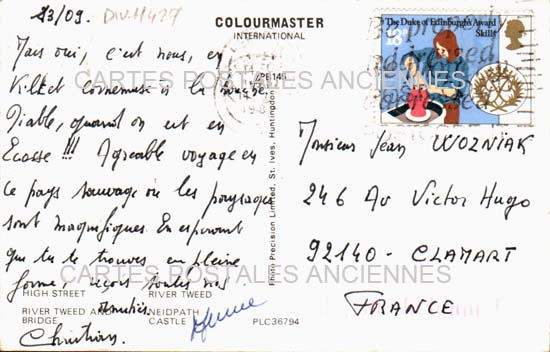 23/09. DIV-11479
COLOURMASTER
INTERNATIONAL
Mais oui, c'est nous, en
Kilt et cornemuse à la bouche.
Diable, quand on est en
Ecosse !!! Agréable voyage en
ce pays sauvage où les paysages
sont magnifiques. En espérant
que tu te trouves en pleine
forme, reçois toutes nos
amitiés.
Christian.
HIGH STREET RIVER TWEED
RIVER TWEED AND NEIDPATH
BRIDGE CASTLE PLC36794
Photo Precision Limited, St. Ives, Huntingdon
The Duke of Edinburgh's Award
Skills
Monsieur Jean WOZNIAK
246 Av Victor Hugo
92140 - CLAMART
FRANCE
CARTES POSTALES ANCIENNES
CARTES POSTALES ANCIENNES